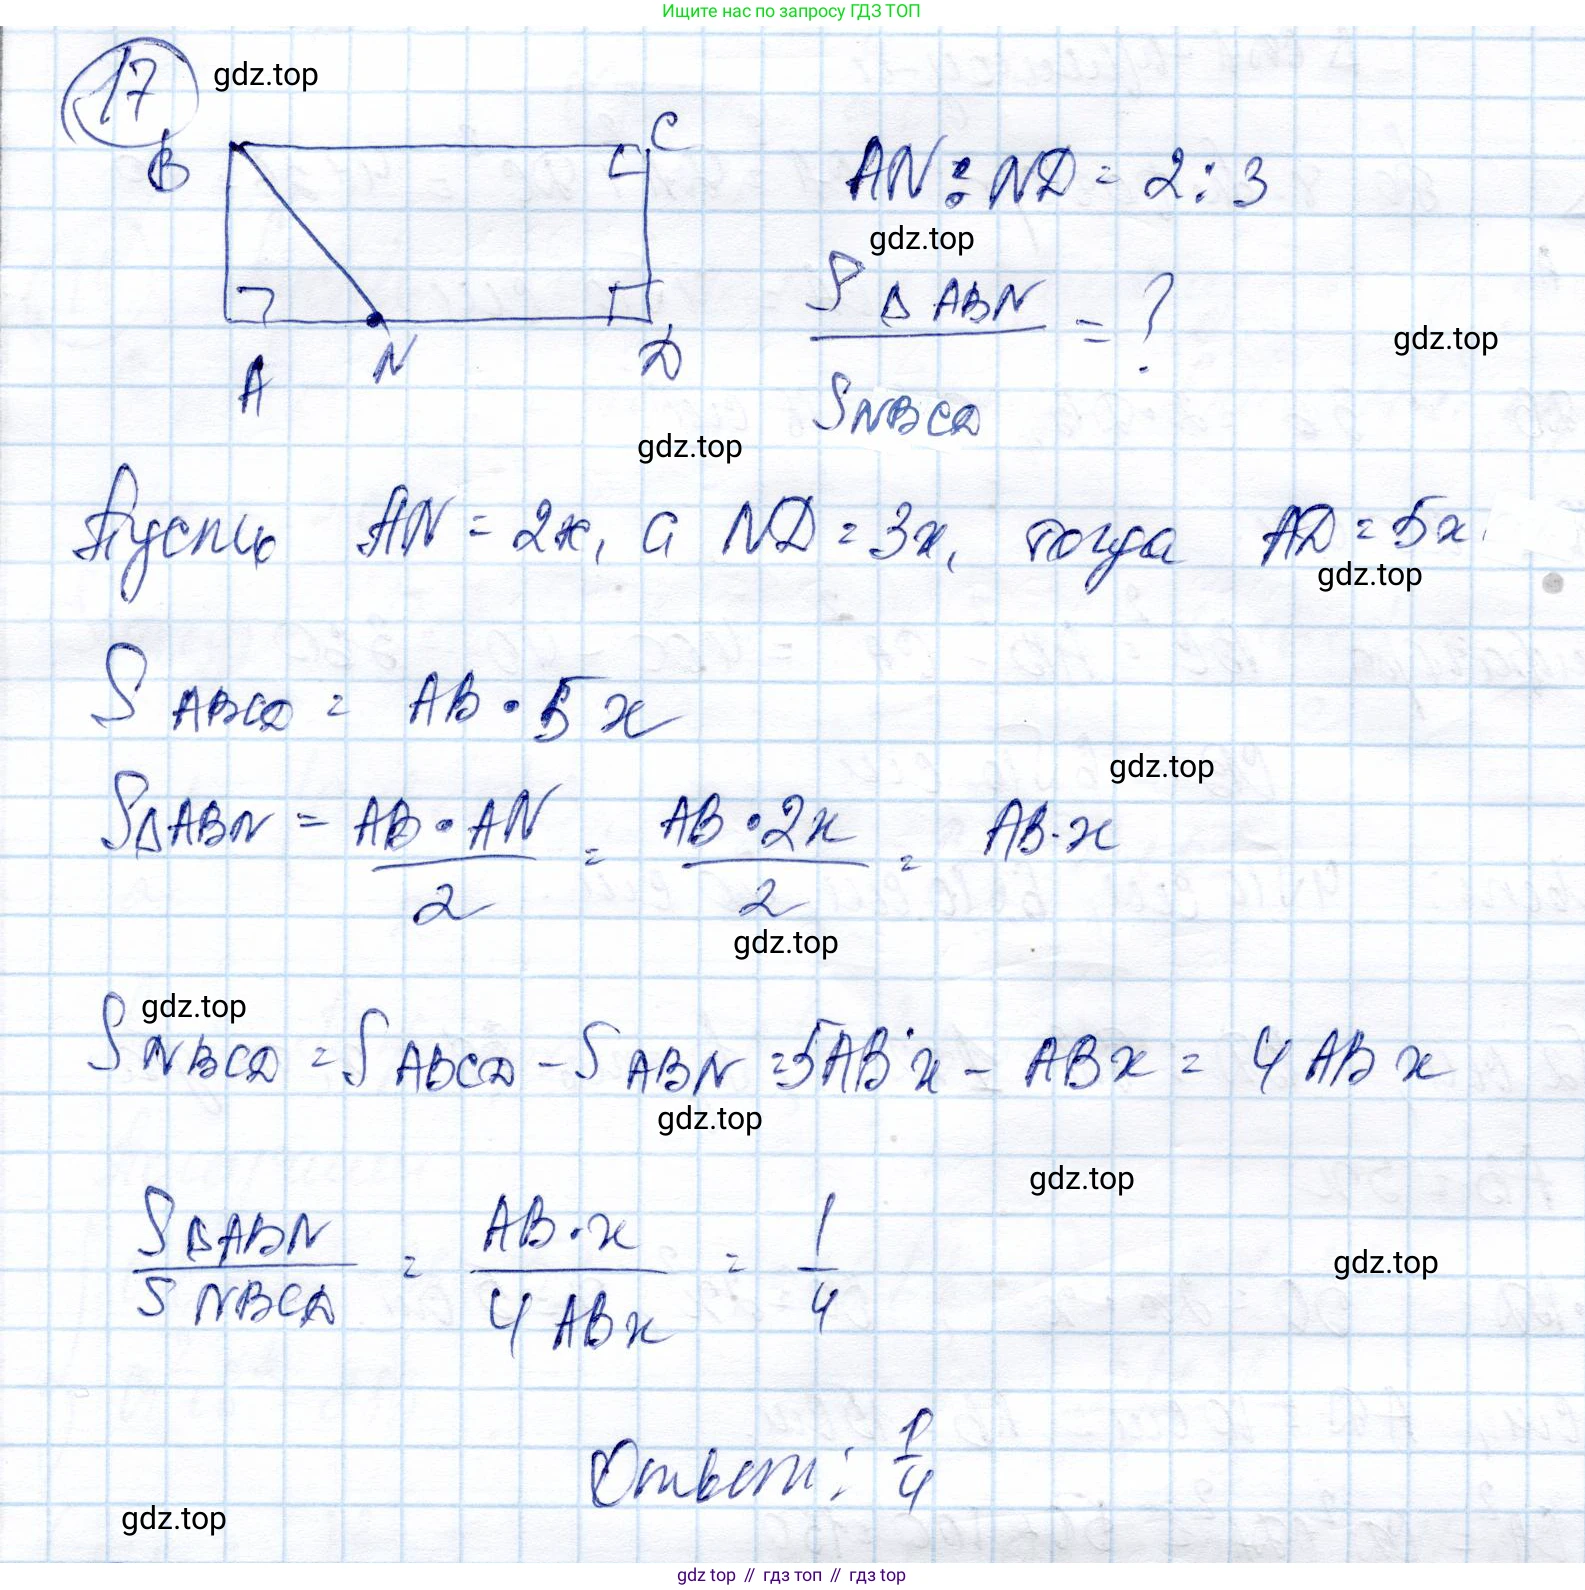 Ищите нас по запросу ГДЗ ТОП
17
gdz.top
B
C
AN : ND = 2 : 3
gdz.top
S △ ABN / S NBCD = ?
gdz.top
A
N
D
gdz.top
Пусть AN = 2x, а ND = 3x, тогда AD = 5x.
gdz.top
S ABCD = AB · 5x
gdz.top
S△ABN = AB · AN / 2 = AB · 2x / 2 = AB · x
gdz.top
gdz.top
S NBCD = S ABCD - S ABN = 5AB · x - ABx = 4ABx
gdz.top
gdz.top
S△ABN / S NBCD = AB · x / 4ABx = 1/4
gdz.top
Ответ: 1/4
gdz.top
gdz top // гдз топ // гдз top